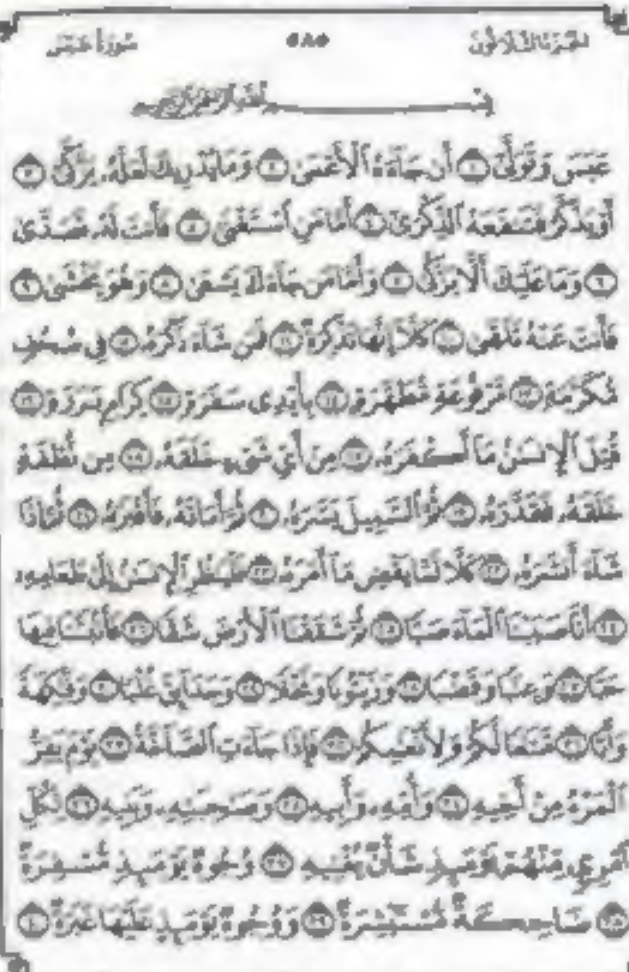 الجزء الثلاثون ٥٨٥ سورة عبس
بسم الله الرحمن الرحيم
عَبَسَ وَتَوَلَّىٰٓ ١ أَن جَآءَهُ ٱلْأَعْمَىٰ ٢ وَمَا يُدْرِيكَ لَعَلَّهُۥ يَزَّكَّىٰٓ ٣
أَوْ يَذَّكَّرُ فَتَنفَعَهُ ٱلذِّكْرَىٰٓ ٤ أَمَّا مَنِ ٱسْتَغْنَىٰ ٥ فَأَنتَ لَهُۥ تَصَدَّىٰ
٦ وَمَا عَلَيْكَ أَلَّا يَزَّكَّىٰ ٧ وَأَمَّا مَن جَآءَكَ يَسْعَىٰ ٨ وَهُوَ يَخْشَىٰ ٩
فَأَنتَ عَنْهُ تَلَهَّىٰ ١٠ كَلَّآ إِنَّهَا تَذْكِرَةٌ ١١ فَمَن شَآءَ ذَكَرَهُۥ ١٢ فِى صُحُفٍ
مُّكَرَّمَةٍ ١٣ مَّرْفُوعَةٍ مُّطَهَّرَةٍۭ ١٤ بِأَيْدِى سَفَرَةٍ ١٥ كِرَامٍۭ بَرَرَةٍ ١٦
قُتِلَ ٱلْإِنسَٰنُ مَآ أَكْفَرَهُۥ ١٧ مِنْ أَىِّ شَىْءٍ خَلَقَهُۥ ١٨ مِن نُّطْفَةٍ
خَلَقَهُۥ فَقَدَّرَهُۥ ١٩ ثُمَّ ٱلسَّبِيلَ يَسَّرَهُۥ ٢٠ ثُمَّ أَمَاتَهُۥ فَأَقْبَرَهُۥ ٢١ ثُمَّ إِذَا
شَآءَ أَنشَرَهُۥ ٢٢ كَلَّا لَمَّا يَقْضِ مَآ أَمَرَهُۥ ٢٣ فَلْيَنظُرِ ٱلْإِنسَٰنُ إِلَىٰ طَعَامِهِۦٓ
٢٤ أَنَّا صَبَبْنَا ٱلْمَآءَ صَبًّا ٢٥ ثُمَّ شَقَقْنَا ٱلْأَرْضَ شَقًّا ٢٦ فَأَنۢبَتْنَا فِيهَا
حَبًّا ٢٧ وَعِنَبًا وَقَضْبًا ٢٨ وَزَيْتُونًا وَنَخْلًا ٢٩ وَحَدَآئِقَ غُلْبًا ٣٠ وَفَٰكِهَةً
وَأَبًّا ٣١ مَّتَٰعًا لَّكُمْ وَلِأَنْعَٰمِكُمْ ٣٢ فَإِذَا جَآءَتِ ٱلصَّآخَّةُ ٣٣ يَوْمَ يَفِرُّ
ٱلْمَرْءُ مِنْ أَخِيهِ ٣٤ وَأُمِّهِۦ وَأَبِيهِ ٣٥ وَصَٰحِبَتِهِۦ وَبَنِيهِ ٣٦ لِكُلِّ
ٱمْرِئٍ مِّنْهُمْ يَوْمَئِذٍ شَأْنٌ يُغْنِيهِ ٣٧ وُجُوهٌ يَوْمَئِذٍ مُّسْفِرَةٌ
٣٨ ضَاحِكَةٌ مُّسْتَبْشِرَةٌ ٣٩ وَوُجُوهٌ يَوْمَئِذٍ عَلَيْهَا غَبَرَةٌ ٤٠